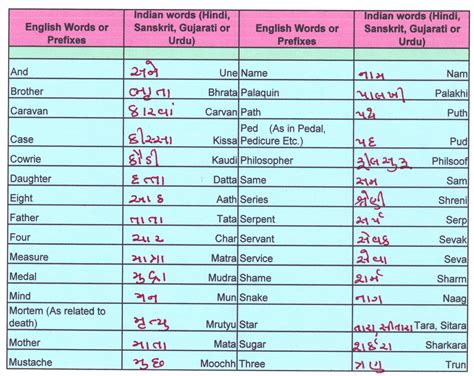 English Words or Prefixes | Indian words (Hindi, Sanskrit, Gujarati or Urdu) | English Words or Prefixes | Indian words (Hindi, Sanskrit, Gujarati or Urdu)
And | અને Une | Name | નામ Nam
Brother | ભ્રાતા Bhrata | Palaquin | પાલખી Palakhi
Caravan | કારવાં Carvan | Path | પથ Puth
Case | કીસ્સા Kissa | Ped (As in Pedal, Pedicure Etc.) | પદ Pud
Cowrie | કૌડી Kaudi | Philosopher | Philsoof
Daughter | દત્તા Datta | Same | સમ Sam
Eight | આઠ Aath | Series | શ્રેણી Shreni
Father | તાતા Tata | Serpent | સર્પ Serp
Four | ચાર Char | Servant | સેવક Sevak
Measure | માત્રા Matra | Service | સેવા Seva
Medal | મુદ્રા Mudra | Shame | શર્મ Sharm
Mind | મન Mun | Snake | નાગ Naag
Mortem (As related to death) | મૃત્યુ Mrutyu | Star | તારા, સીતારા Tara, Sitara
Mother | માતા Mata | Sugar | શર્કરા Sharkara
Mustache | મુછ Moochh | Three | ત્રણ Trun